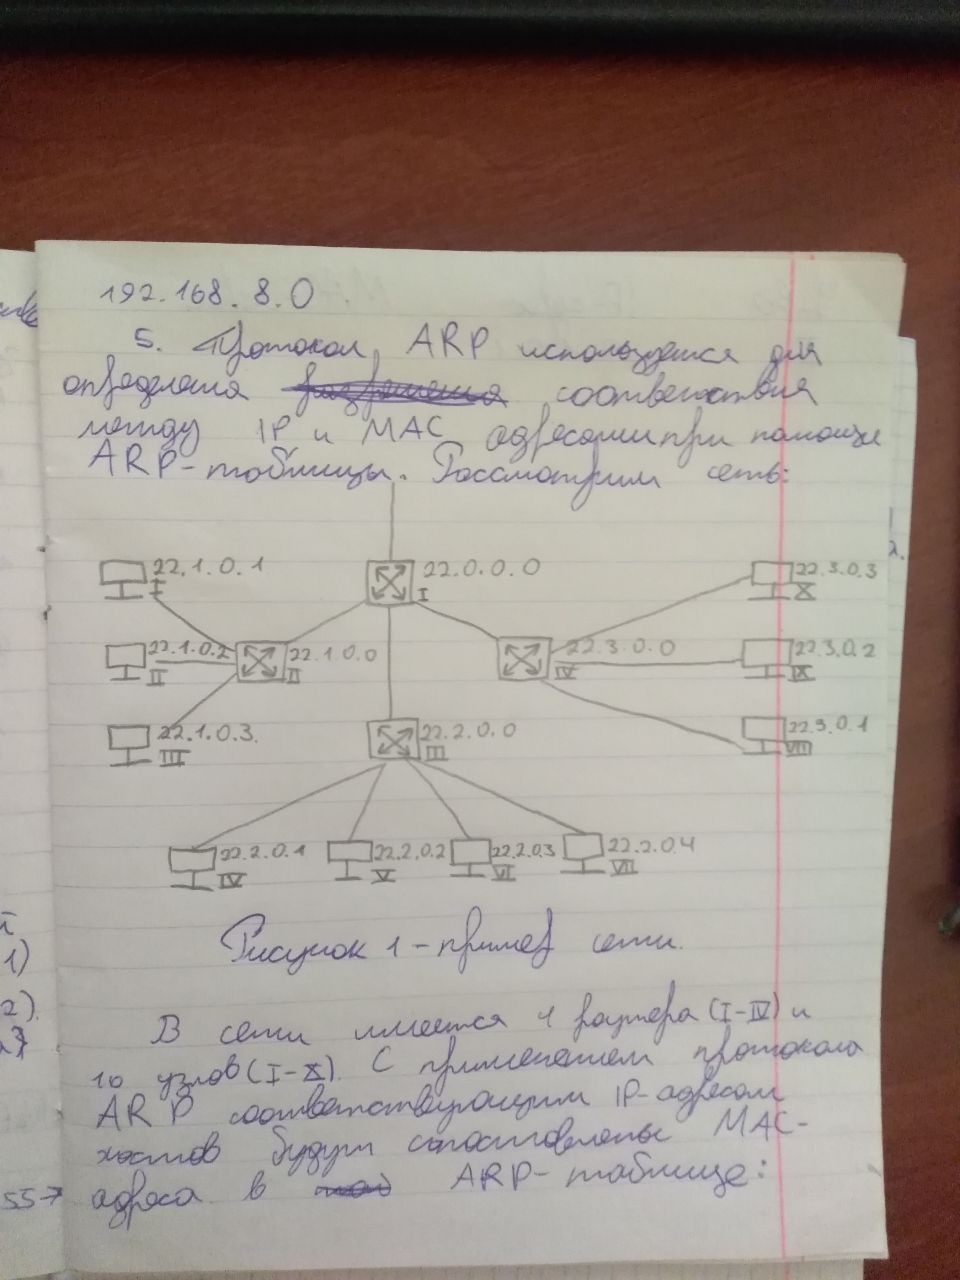 192.168.8.0
5. Протокол ARP используется для
определения соответствия
между IP и MAC адресами при помощи
ARP-таблицы. Рассмотрим сеть:
22.1.0.1
I
22.0.0.0
I
22.3.0.3
X
22.1.0.2
II
22.1.0.0
II
22.3.0.0
IV
22.3.0.2
IX
22.1.0.3.
III
22.2.0.0
III
22.3.0.1
VIII
22.2.0.1
IV
22.2.0.2
V
22.2.0.3
VI
22.2.0.4
VII
Рисунок 1 - пример сети.
В сети имеется 4 роутера (I-IV) и
10 узлов (I-X). С применением протокола
ARP соответствующим IP-адресам
хостов будут сопоставлены MAC-
адреса в ARP-таблице:
1)
2).
55->